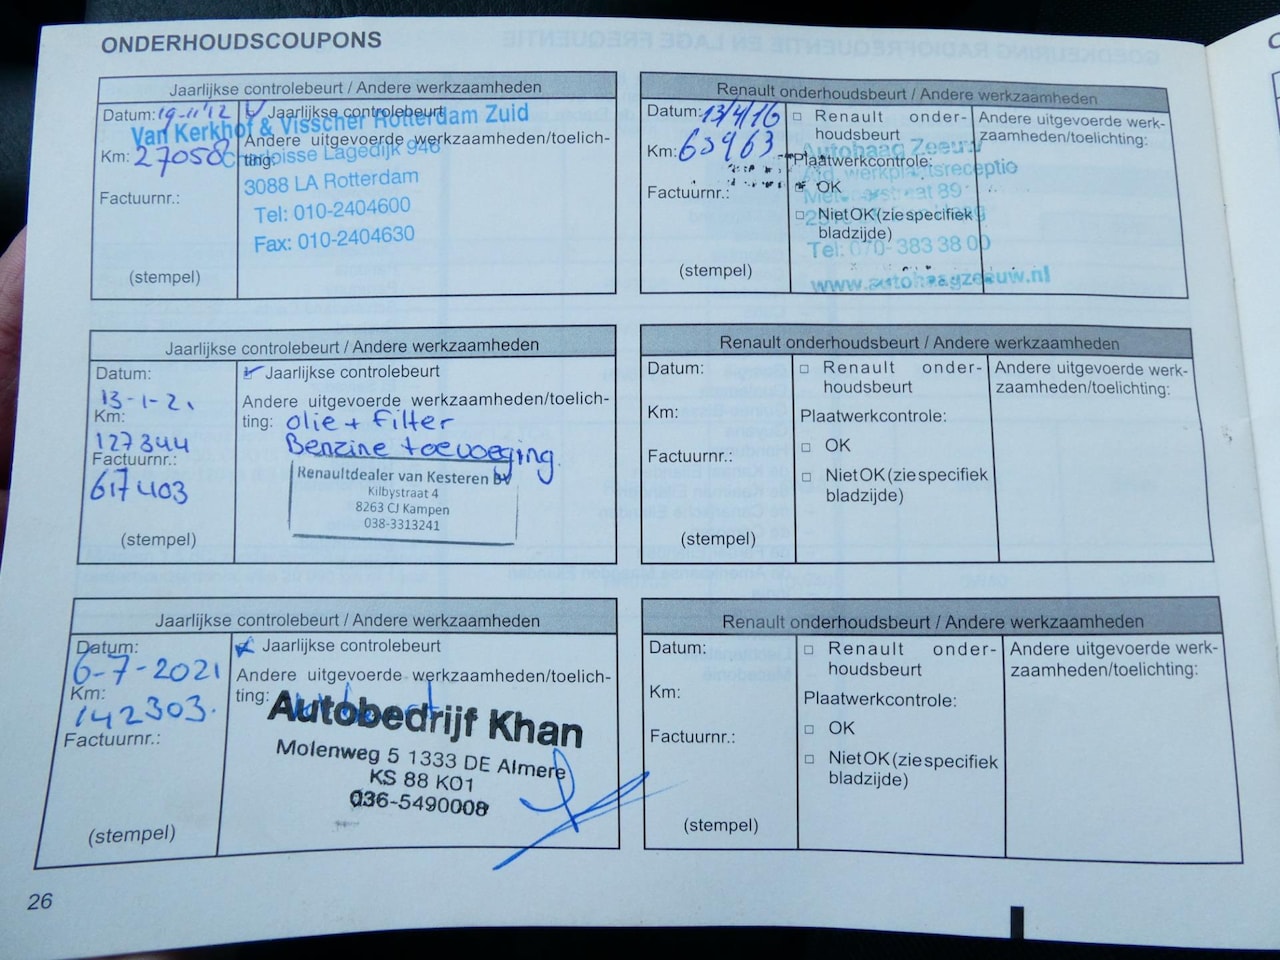 ONDERHOUDSCOUPONS
Jaarlijkse controlebeurt / Andere werkzaamheden
Datum: 19-11'12
Jaarlijkse controlebeurt
Van Kerkhof & Visscher Rotterdam Zuid
Andere uitgevoerde werkzaamheden/toelich-
ting:
Km: 27058
Lagedijk 946
3088 LA Rotterdam
Factuurnr.:
Tel: 010-2404600
Fax: 010-2404630
(stempel)
Renault onderhoudsbeurt / Andere werkzaamheden
Datum: 13/4/16
Renault onder-
houdsbeurt
Andere uitgevoerde werk-
zaamheden/toelichting:
Km: 63963
Autohaag Zeeuw
Plaatwerkcontrole:
Afd. werkplaatsreceptie
Factuurnr.:
OK
89
Niet OK (zie specifiek
bladzijde)
Tel: 070-383 38 00
(stempel)
www.autohaagzeeuw.nl
Jaarlijkse controlebeurt / Andere werkzaamheden
Datum:
13-1-21
Km:
127344
Factuurnr.:
617403
(stempel)
Jaarlijkse controlebeurt
Andere uitgevoerde werkzaamheden/toelich-
ting: olie + Filter
Benzine toevoeging.
Renaultdealer van Kesteren BV
Kilbystraat 4
8263 CJ Kampen
038-3313241
Renault onderhoudsbeurt / Andere werkzaamheden
Datum:
Km:
Factuurnr.:
(stempel)
Renault onder-
houdsbeurt
Plaatwerkcontrole:
OK
Niet OK (zie specifiek
bladzijde)
Andere uitgevoerde werk-
zaamheden/toelichting:
Jaarlijkse controlebeurt / Andere werkzaamheden
Datum:
6-7-2021
Km:
142303.
Factuurnr.:
(stempel)
Jaarlijkse controlebeurt
Andere uitgevoerde werkzaamheden/toelich-
ting:
Autobedrijf Khan
Molenweg 5 1333 DE Almere
KS 88 K01
036-5490008
Renault onderhoudsbeurt / Andere werkzaamheden
Datum:
Km:
Factuurnr.:
(stempel)
Renault onder-
houdsbeurt
Plaatwerkcontrole:
OK
Niet OK (zie specifiek
bladzijde)
Andere uitgevoerde werk-
zaamheden/toelichting:
26